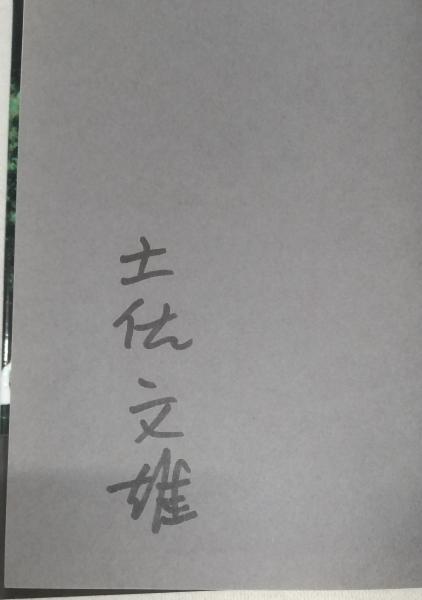 土佐文雄